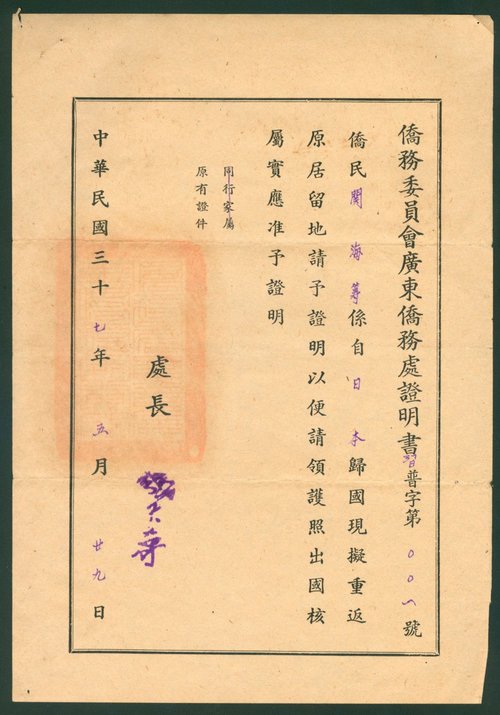 僑務委員會廣東僑務處證明書普字第００一號
僑民關海籌係自日本歸國現擬重返
原居留地請予證明以便請領護照出國核
屬實應准予證明
同行家屬
原有證件
處長
中華民國三十七年五月廿九日